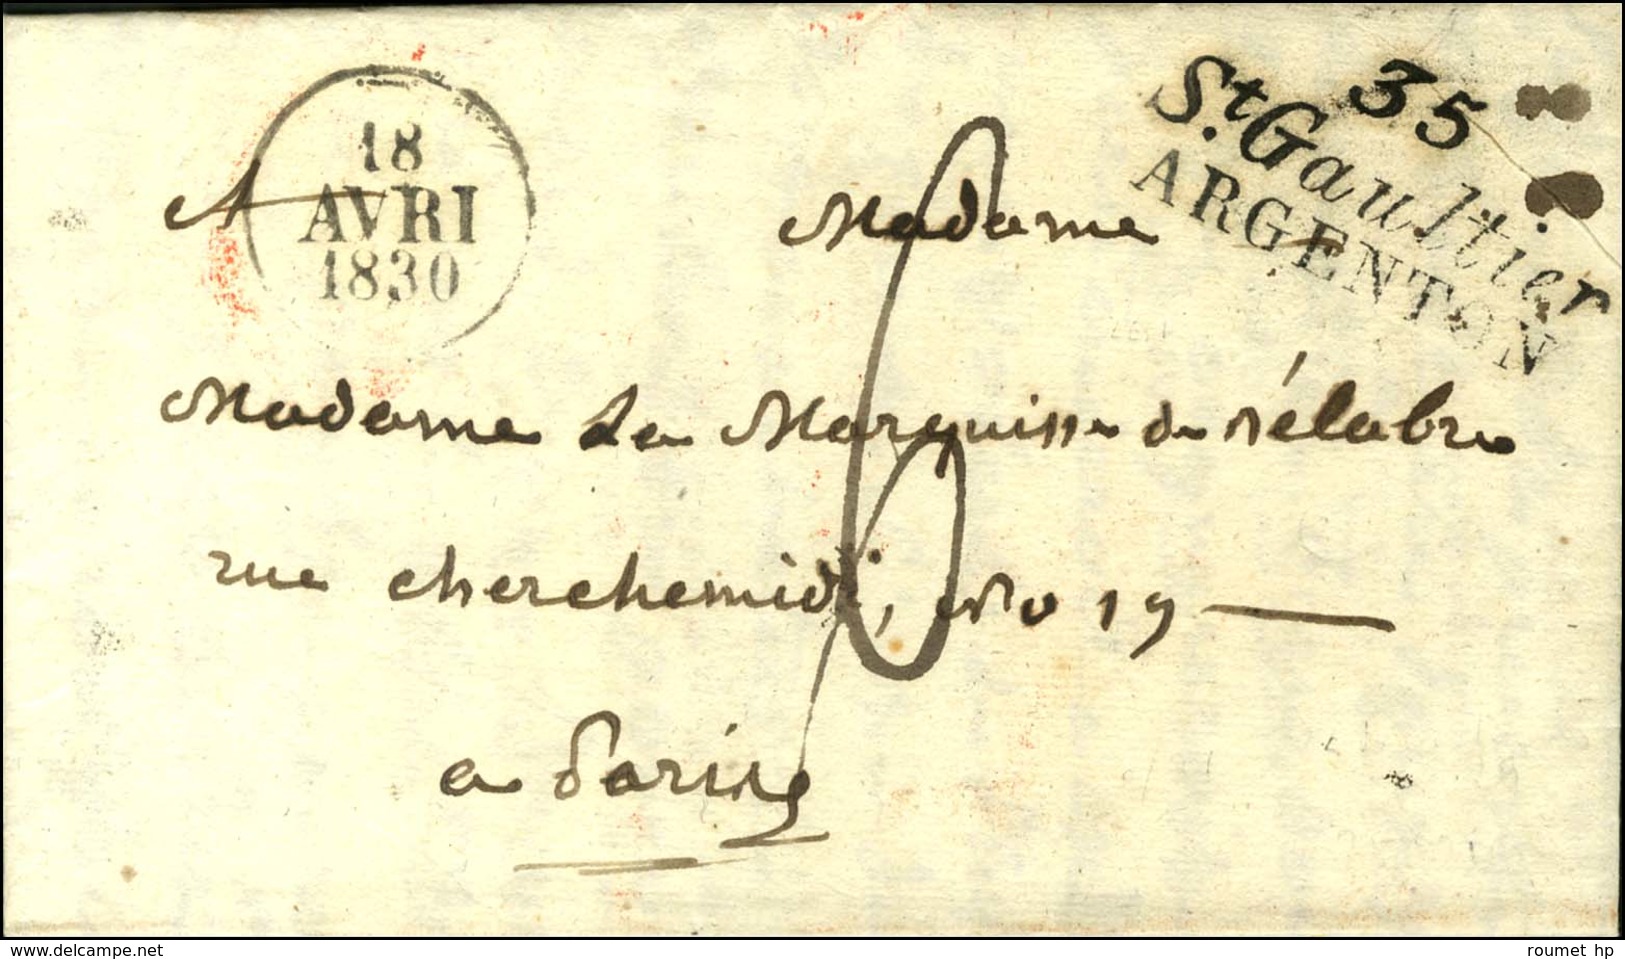 35
St Gaultier
ARGENTON
18
AVRI
1830
A Madame
Madame La Marquise de Bélabre
rue cherchemidi, No 19
a Paris
6
delcampe.net
roumet hp